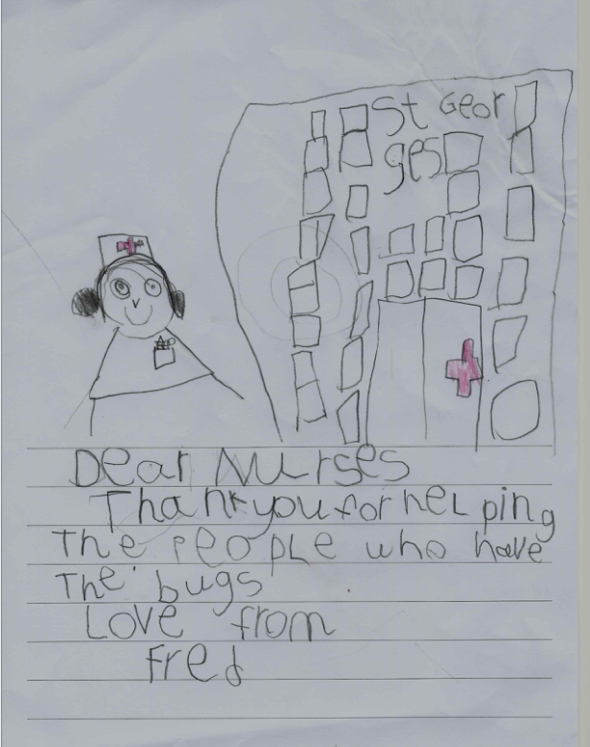 St Geor
ges
Dear Nurses
Thank you for helping
The people who have
The bugs
Love from
Fred